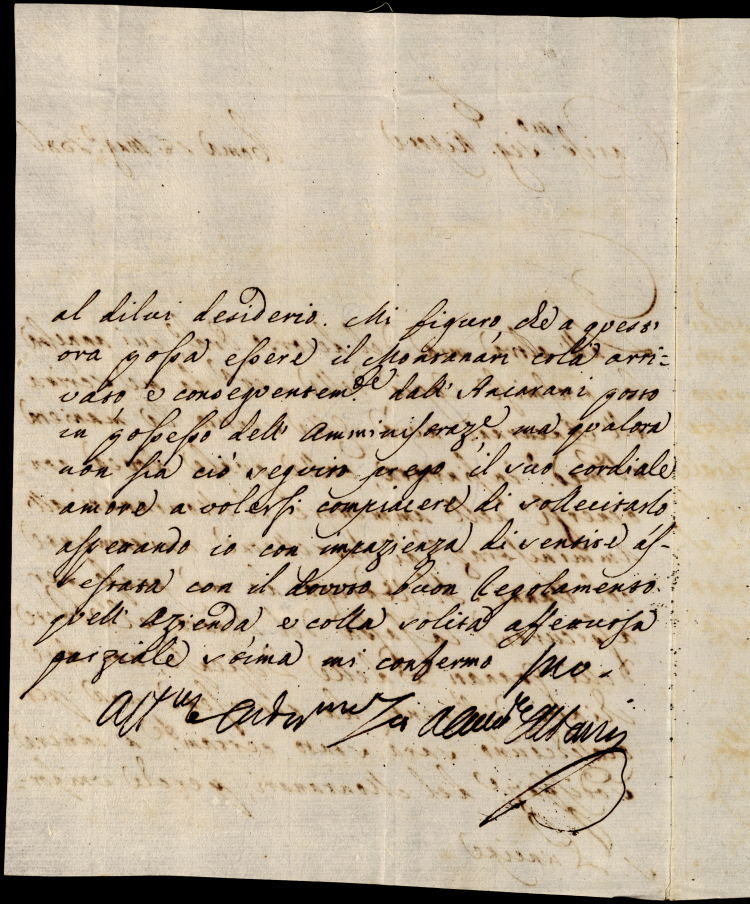 al dilui desiderio. Mi figuro, che a quest'
ora possa essere il Montanari colà arri-
vato e conseguentem.te dall' Ancarani posto
in possesso dell' Amministraz.e, ma qualora
non sia ciò seguito prego il suo cordiale
amore a volersi compiacere di sollecitarlo
aspettando io con impazienza di sentire as-
sestata con il dovuto buon Regolamento
quell' Azienda e colla solita affettuosa
parziale stima mi confermo suo
Aff.mo